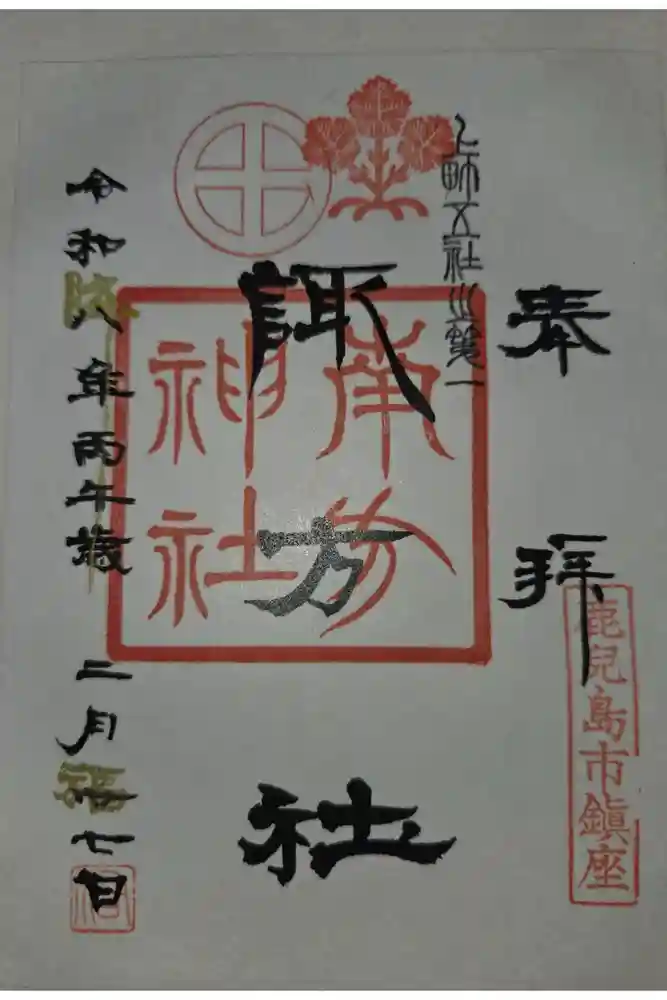 奉拝
鹿兒島市鎮座
上町五社之第一
諏方社
南方
神社
令和八年丙午歳 二月廿七日